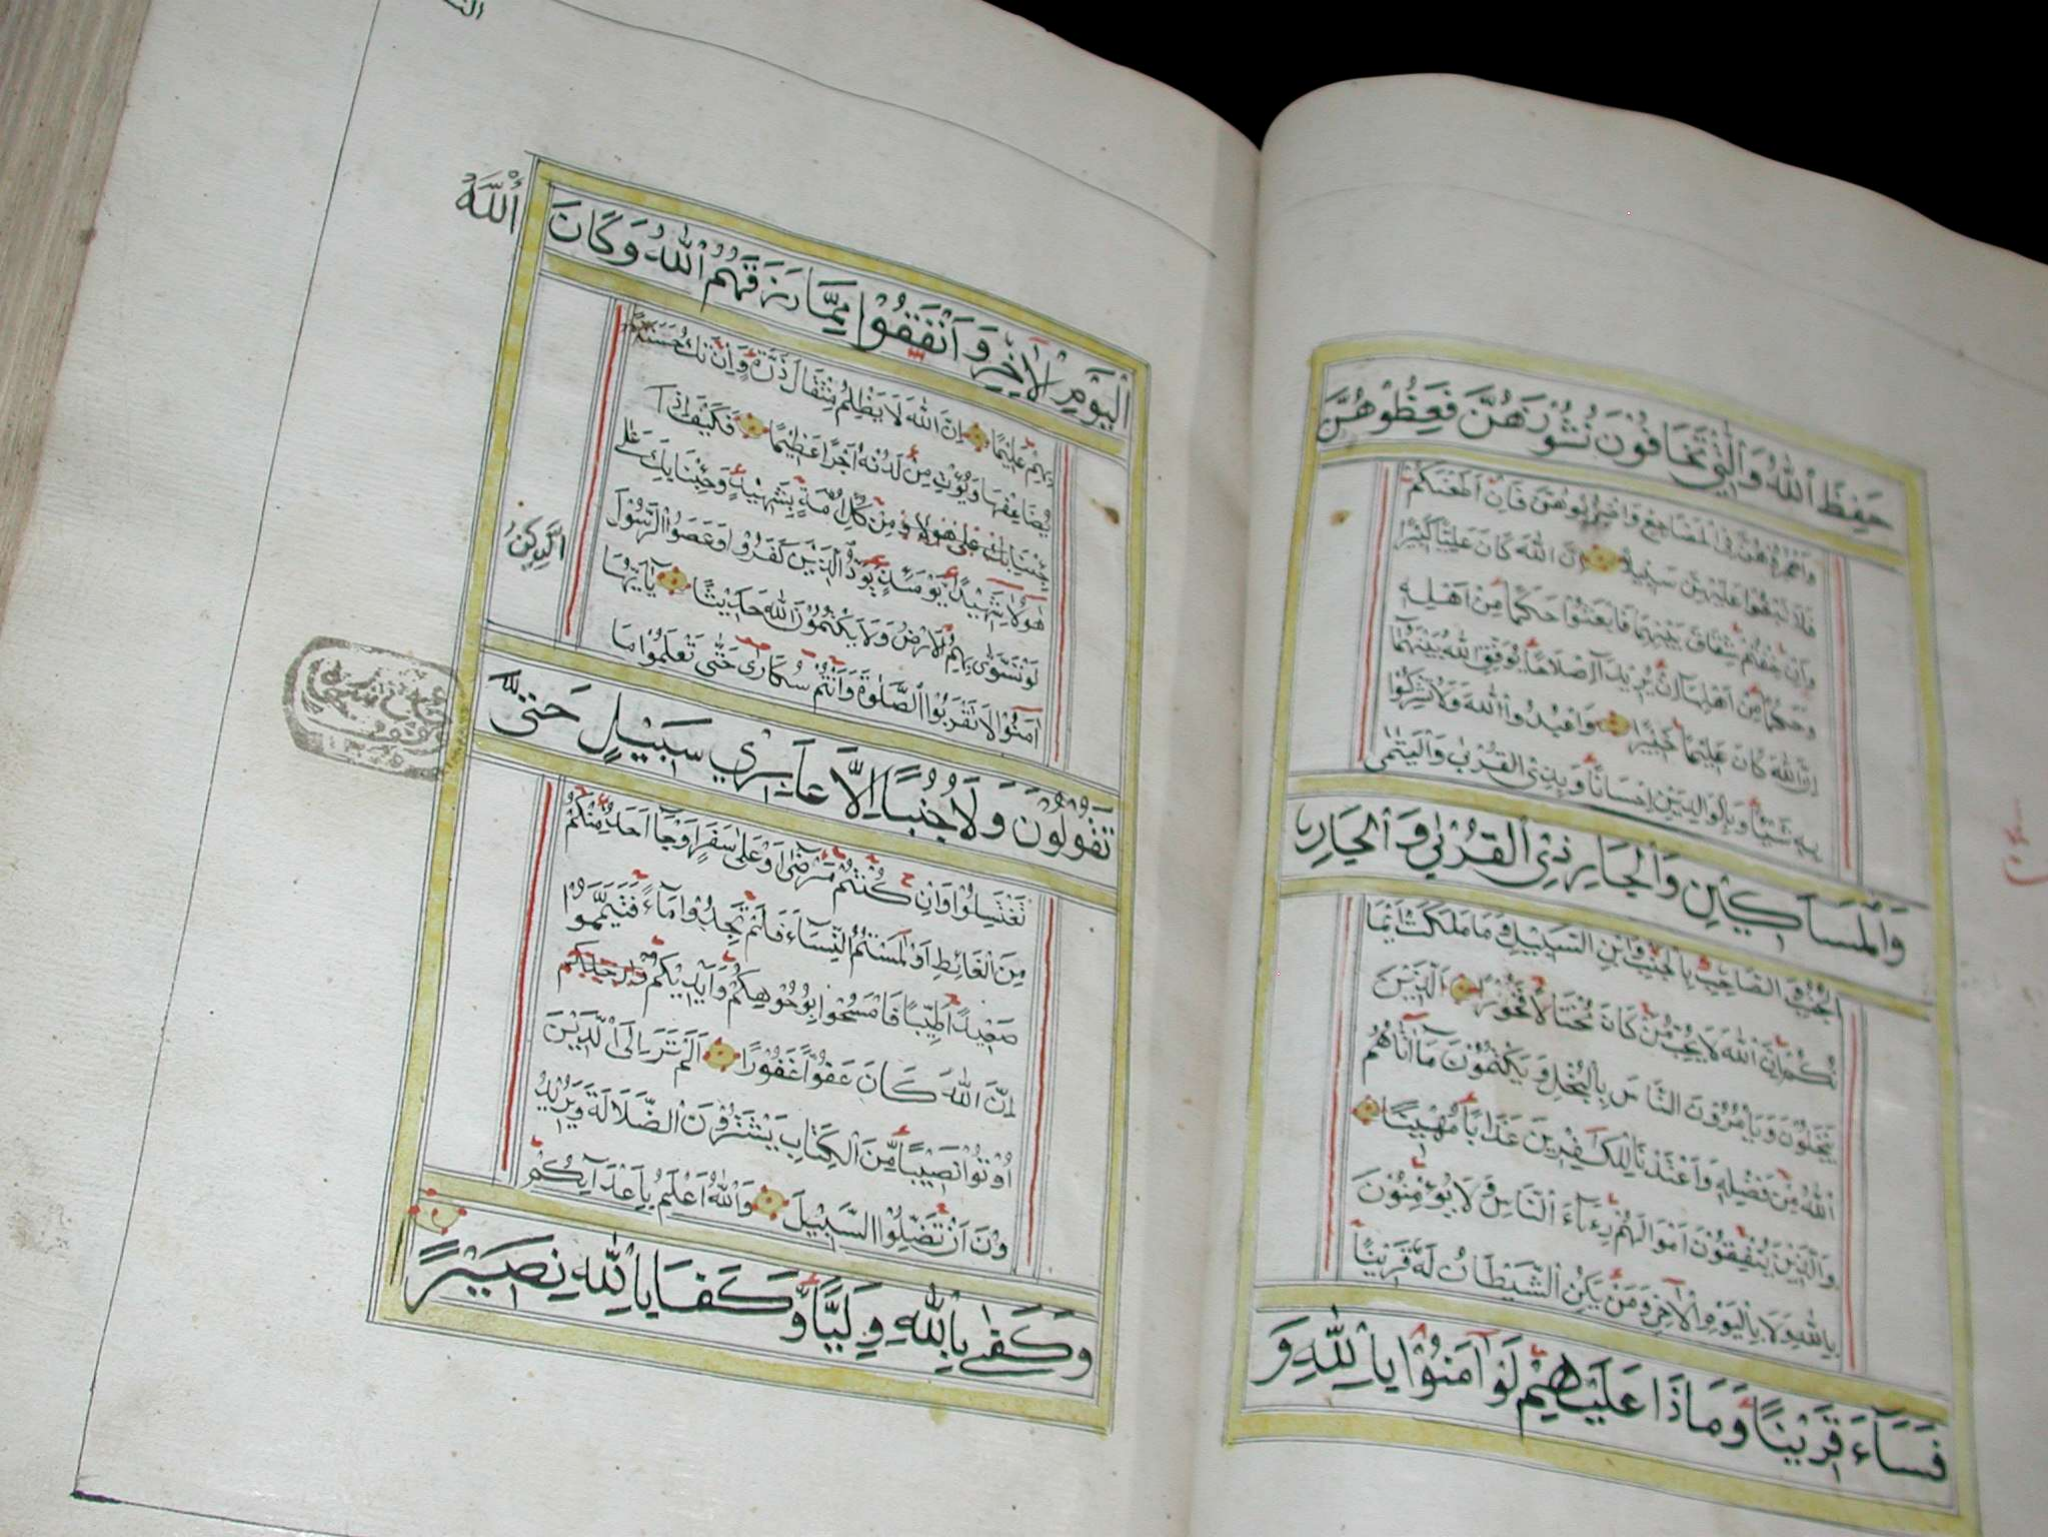 حَفِظَ ٱللّٰهُ وَالّٰتِي تَخَافُوْنَ نُشُوْزَهُنَّ فَعِظُوْهُنَّ
وَاهْجُرُوْهُنَّ فِي الْمَضَاجِعِ وَاضْرِبُوْهُنَّ فَاِنْ اَطَعْنَكُمْ
فَلَا تَبْغُوْا عَلَيْهِنَّ سَبِيْلًا اِنَّ اللّٰهَ كَانَ عَلِيًّا كَبِيْرًا
وَاِنْ خِفْتُمْ شِقَاقَ بَيْنِهِمَا فَابْعَثُوْا حَكَمًا مِنْ اَهْلِهٖ
وَحَكَمًا مِنْ اَهْلِهَا اِنْ يُرِيْدَآ اِصْلَاحًا يُوَفِّقِ اللّٰهُ بَيْنَهُمَا
اِنَّ اللّٰهَ كَانَ عَلِيْمًا خَبِيْرًا وَاعْبُدُوا اللّٰهَ وَلَا تُشْرِكُوْا
بِهٖ شَيْئًا وَبِالْوَالِدَيْنِ اِحْسَانًا وَبِذِي الْقُرْبٰى وَالْيَتٰمٰى
وَالْمَسَاكِيْنِ وَالْجَارِ ذِي الْقُرْبٰى وَالْجَارِ
الْجُنُبِ وَالصَّاحِبِ بِالْجَنْبِ وَابْنِ السَّبِيْلِ وَمَا مَلَكَتْ اَيْمَا
نُكُمْ اِنَّ اللّٰهَ لَا يُحِبُّ مَنْ كَانَ مُخْتَالًا فَخُوْرًا الَّذِيْنَ
يَبْخَلُوْنَ وَيَأْمُرُوْنَ النَّاسَ بِالْبُخْلِ وَيَكْتُمُوْنَ مَآ اٰتٰاهُمُ
اللّٰهُ مِنْ فَضْلِهٖ وَاَعْتَدْنَا لِلْكَافِرِيْنَ عَذَابًا مُهِيْنًا
وَالَّذِيْنَ يُنْفِقُوْنَ اَمْوَالَهُمْ رِئَآءَ النَّاسِ وَلَا يُؤْمِنُوْنَ
بِاللّٰهِ وَلَا بِالْيَوْمِ الْاٰخِرِ وَمَنْ يَكُنِ الشَّيْطَانُ لَهٗ قَرِيْنًا
فَسَآءَ قَرِيْنًا وَمَاذَا عَلَيْهِمْ لَوْ اٰمَنُوْا بِاللّٰهِ وَ
الْيَوْمِ الْاٰخِرِ وَاَنْفَقُوْا مِمَّا رَزَقَهُمُ اللّٰهُ وَكَانَ
اللّٰهُ
بِهِمْ عَلِيْمًا اِنَّ اللّٰهَ لَا يَظْلِمُ مِثْقَالَ ذَرَّةٍ وَاِنْ تَكُ حَسَنَةً
يُضَاعِفْهَا وَيُؤْتِ مِنْ لَدُنْهُ اَجْرًا عَظِيْمًا فَكَيْفَ اِذَا
جِئْنَا مِنْ كُلِّ اُمَّةٍ بِشَهِيْدٍ وَجِئْنَا بِكَ عَلٰى
هٰؤُلَآءِ شَهِيْدًا يَوْمَئِذٍ يَوَدُّ الَّذِيْنَ كَفَرُوْا وَعَصَوُا الرَّسُوْلَ
لَوْ تُسَوّٰى بِهِمُ الْاَرْضُ وَلَا يَكْتُمُوْنَ اللّٰهَ حَدِيْثًا يٰاَيُّهَا
الَّذِيْنَ
اٰمَنُوْا لَا تَقْرَبُوا الصَّلٰوةَ وَاَنْتُمْ سُكَارٰى حَتّٰى تَعْلَمُوْا مَا
تَقُوْلُوْنَ وَلَا جُنُبًا اِلَّا عَابِرِيْ سَبِيْلٍ حَتّٰى
تَغْتَسِلُوْا وَاِنْ كُنْتُمْ مَرْضٰى اَوْ عَلٰى سَفَرٍ اَوْ جَآءَ اَحَدٌ مِنْكُمْ
مِنَ الْغَائِطِ اَوْ لٰمَسْتُمُ النِّسَآءَ فَلَمْ تَجِدُوْا مَآءً فَتَيَمَّمُوْا
صَعِيْدًا طَيِّبًا فَامْسَحُوْا بِوُجُوْهِكُمْ وَاَيْدِيْكُمْ وَاَرْجُلِكُمْ
اِنَّ اللّٰهَ كَانَ عَفُوًّا غَفُوْرًا اَلَمْ تَرَ اِلَى الَّذِيْنَ
اُوْتُوْا نَصِيْبًا مِّنَ الْكِتَابِ يَشْتَرُوْنَ الضَّلَالَةَ وَيُرِيْدُ
وْنَ اَنْ تَضِلُّوا السَّبِيْلَ وَاللّٰهُ اَعْلَمُ بِاَعْدَآئِكُمْ
وَكَفٰى بِاللّٰهِ وَلِيًّا وَّكَفَا بِاللّٰهِ نَصِيْرًا